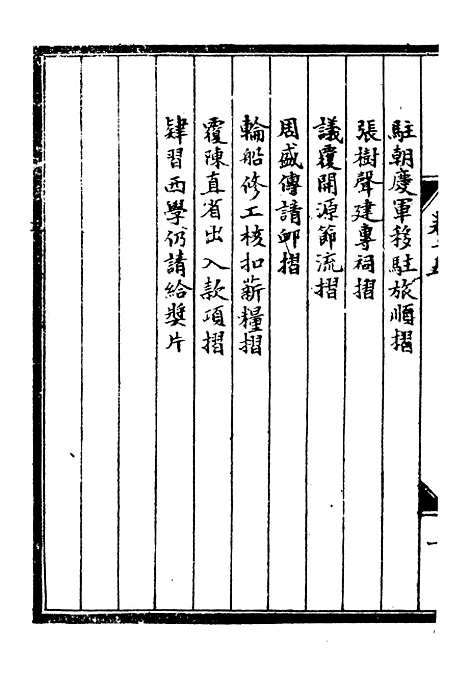 駐朝慶軍移駐旅順摺
張樹聲建專祠摺
議覆開源節流摺
周盛傳請卹摺
輪船修工核扣薪糧摺
覆陳直省出入款項摺
肄習西學仍請給獎片
一